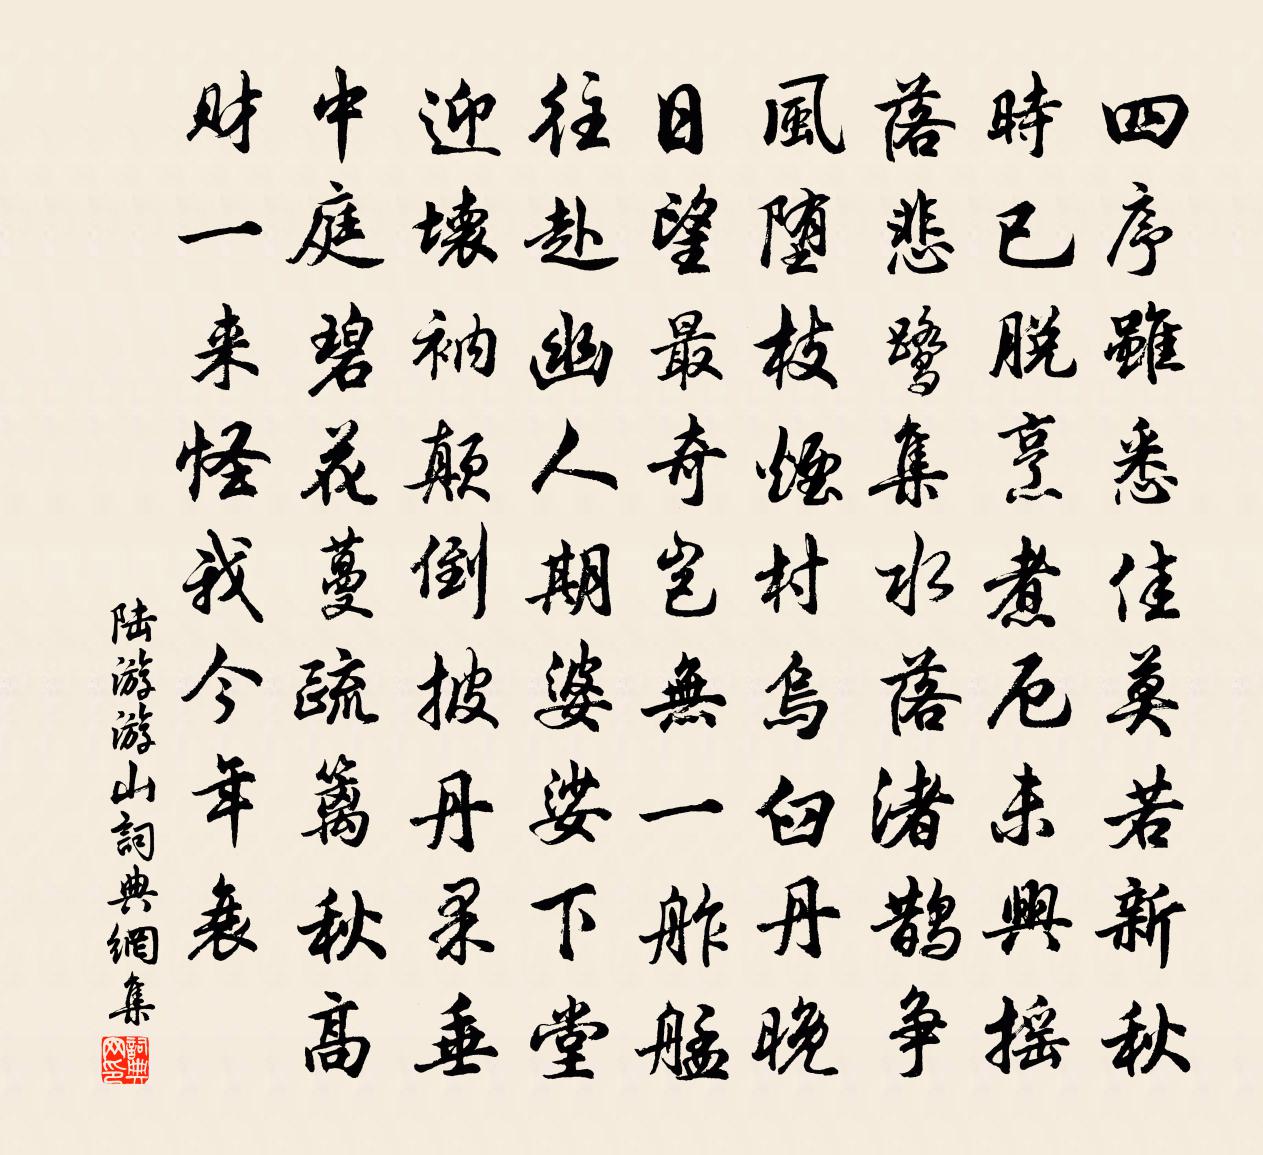 四序雖悉佳莫若新秋
時已脱烹煮厄未興摇
落悲鹭集水落渚鹊争
風堕枝煙村烏臼丹晚
日望最奇岂無一舴艋
往赴幽人期婆娑下堂
迎壞衲颠倒披丹果垂
中庭碧花蔓疏篱秋高
财一来怪我今年衰
陆游游山詞典網集
詞典网印